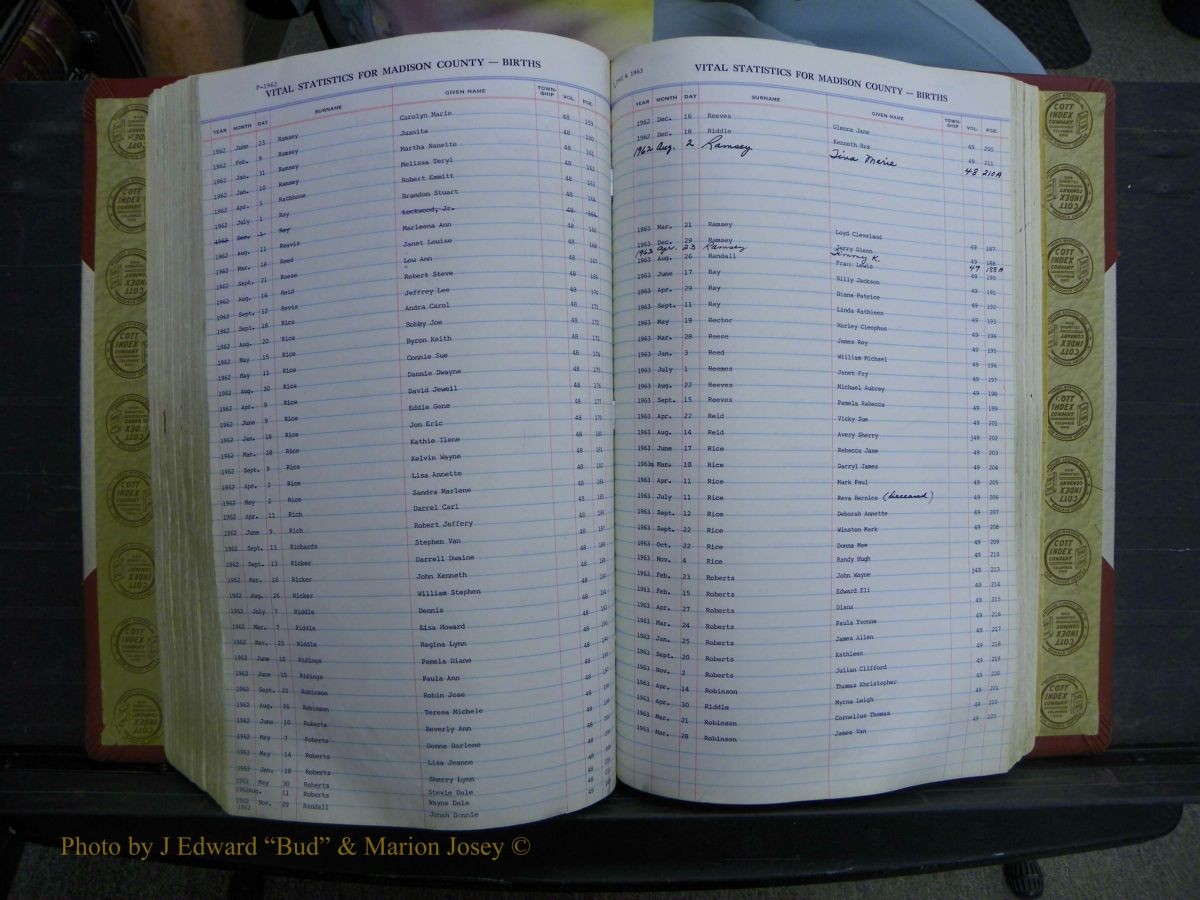 P-1962
VITAL STATISTICS FOR MADISON COUNTY — BIRTHS
YEAR MONTH DAY SURNAME GIVEN NAME TOWN-SHIP VOL. PGE.
1962 June 23 Ramsey Carolyn Marie 48
1962 Feb. 9 Ramsey Juanita 48
1962 Jan. 31 Ramsey Martha Nanette 48
1962 Jan. 10 Ramsey Melissa Teryl 48
1962 Apr. 5 Rathbone Robert Emmitt 48
1962 July 1 Ray Brandon Stuart 48
1962 Dec. 1 Ray Lockwood, Jr. 48
1962 Aug. 11 Reavis Marleena Ann 48
1962 Mar. 18 Reed Janet Louise 48
1962 Sept. 21 Reese Lou Ann 48
1962 Aug. 16 Reid Robert Steve 48
1962 Sept. 12 Revis Jeffrey Lee 48
1962 Sept. 18 Rice Andra Carol 48
1962 Aug. 20 Rice Bobby Joe 48
1962 May 15 Rice Byron Keith 48
1962 May 11 Rice Connie Sue 48
1962 Aug. 30 Rice Dannie Dwayne 48
1962 Apr. 9 Rice David Jewell 48
1962 June 9 Rice Eddie Gene 48
1962 Jan. 18 Rice Jon Eric 48
1962 Mar. 18 Rice Kathie Ilene 48
1962 Sept. 9 Rice Kelvin Wayne 48
1962 Apr. 2 Rice Lisa Annette 48
1962 May 2 Rice Sandra Marlene 48
1962 Apr. 11 Rich Darrel Carl 48
1962 June 9 Rich Robert Jeffery 48
1962 Sept. 13 Richards Stephen Van 48
1962 Sept. 13 Ricker Darrell Dwaine 48
1962 Mar. 16 Ricker John Kenneth 48
1962 Aug. 26 Ricker William Stephen 48
1962 July 7 Riddle Dennis 48
1962 Mar. 7 Riddle Eisa Howard 48
1962 Mar. 23 Riddle Regina Lynn 48
1962 June 10 Ridings Pamela Diane 48
1962 June 10 Ridings Paula Ann 48
1962 Sept. 23 Robinson Robin Jose 48
1962 Aug. 26 Robinson Teresa Michele 48
1962 June 10 Roberts Beverly Ann 48
1962 May 7 Roberts Donna Darlene 48
1962 May 14 Roberts Lisa Jeanne 48
1962 Jan. 18 Roberts Sherry Lynn 48
1962 May 30 Roberts Stevie Dale
1962 Aug. 11 Roberts Wayne Dale
1962 Nov. 29 Randall Jonah Donnie
1962 & 1963
VITAL STATISTICS FOR MADISON COUNTY — BIRTHS
YEAR MONTH DAY SURNAME GIVEN NAME TOWN-SHIP VOL. PGE.
1962 Dec. 16 Reeves Glenna Jane 49 200
1962 Dec. 18 Riddle Kenneth Rex 49 211
1962 Aug. 2 Ramsey Tina Marie 48 210A
1963 Mar. 21 Ramsey Loyd Cleveland 49 187
1963 Dec. 29 Ramsey Jerry Glenn 49 188
1963 Apr. 23 Ramsey Jimmy K. 49 188A
1963 Aug. 26 Randall Lewis 49 190
1963 June 17 Ray Billy Jackson 49 191
1963 Apr. 29 Ray Diane Patrice 49 192
1963 Sept. 11 Ray Linda Kathleen 49 193
1963 May 19 Rector Harley Cleophus 49 194
1963 Mar. 28 Reese James Roy 49 195
1963 Jan. 3 Reed William Michael 49 196
1963 July 1 Reemes Janet Fay 49 197
1963 Aug. 22 Reeves Michael Aubrey 49 198
1963 Sept. 15 Reeves Pamela Rebecca 49 199
1963 Apr. 22 Reid Vicky Sue 49 201
1963 Aug. 14 Reid Avery Sherry 49 202
1963 June 17 Rice Rebecca Jane 49 203
1963 Mar. 10 Rice Darryl James 49 204
1963 Apr. 11 Rice Mark Paul 49 205
1963 July 11 Rice Reva Bernice (Deceased) 49 206
1963 Sept. 12 Rice Deborah Annette 49 207
1963 Sept. 22 Rice Winston Mark 49 208
1963 Oct. 22 Rice Donna Mae 49 209
1963 Nov. 4 Rice Randy Hugh 49 210
1963 Feb. 23 Roberts John Wayne 49 213
1963 Feb. 15 Roberts Edward Eli 49 214
1963 Apr. 27 Roberts Diana 49 215
1963 Mar. 24 Roberts Paula Yvonne 49 216
1963 Jan. 25 Roberts James Allen 49 217
1963 Sept. 20 Roberts Kathleen 49 218
1963 Nov. 2 Roberts Julian Clifford 49 219
1963 Apr. 14 Robinson Thomas Khristopher 49 220
1963 Apr. 30 Riddle Myrna Leigh 49 221
1963 Mar. 21 Robinson Cornelius Thomas 49 222
1963 Mar. 28 Robinson James Van 49 223
COTT INDEX COMPANY COLUMBUS OHIO
Photo by J Edward “Bud” & Marion Josey ©